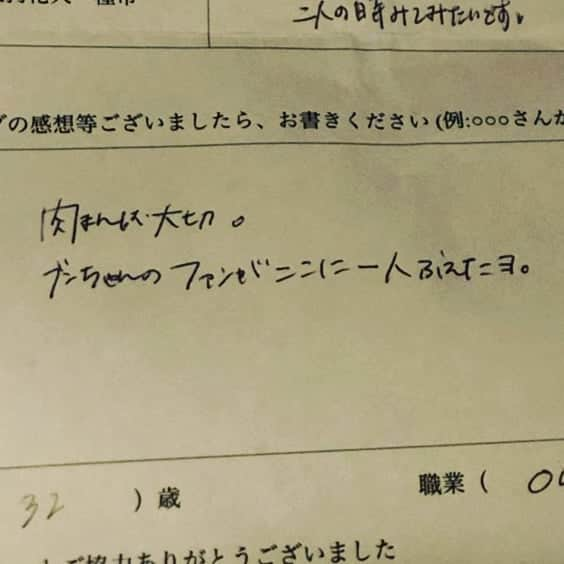 二人の日常みてみたいです。
の感想等ございましたら、お書きください(例:○○○さんが
肉まんは大切。
ブンちゃんのファンがここに一人ふえたヨ。
32 ) 歳 職業 ( O
ご協力ありがとうございました